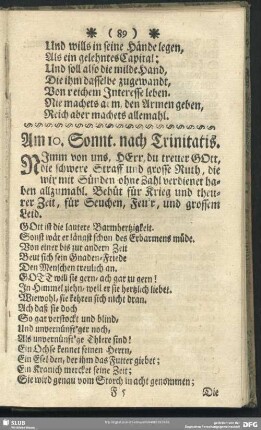 * ( 89 ) *
Und wills in seine Hände legen,
Als ein gelehntes Capital;
Und soll also die milde Hand,
Die ihm dasselbe zugewandt,
Von reichem Interesse leben.
Nie machets arm den Armen geben,
Reich aber machets allemahl.
Am 10. Sonnt. nach Trinitatis.
Nimm von uns, HErr, du treuer GOtt,
die schwere Straff und grosse Ruth, die
wir mit Sünden ohne Zahl verdienet ha-
ben allzumahl. Behüt für Krieg und theu-
rer Zeit, für Seuchen, Feu'r, und grossem
Leid.
GOtt ist die lautere Barmhertzigkeit.
Sonst wär er längst schon des Erbarmens müde.
Von einer biß zur andern Zeit
Beut sich sein Gnaden-Friede
Den Menschen treulich an.
GOTT will sie gern, ach gar zu gern!
In Himmel ziehn, weil er sie hertzlich liebet.
Wiewohl, sie kehren sich nicht dran.
Ach daß sie doch
So gar verstockt und blind,
Und unvernünft'ger noch,
Als unvernünft'ge Thiere sind!
Ein Ochse kennet seinen Herrn,
Ein Esel den, der ihm das Futter giebet;
Ein Kranich mercket seine Zeit;
Sie wird genau vom Storch in acht genommen;
F 5 Die